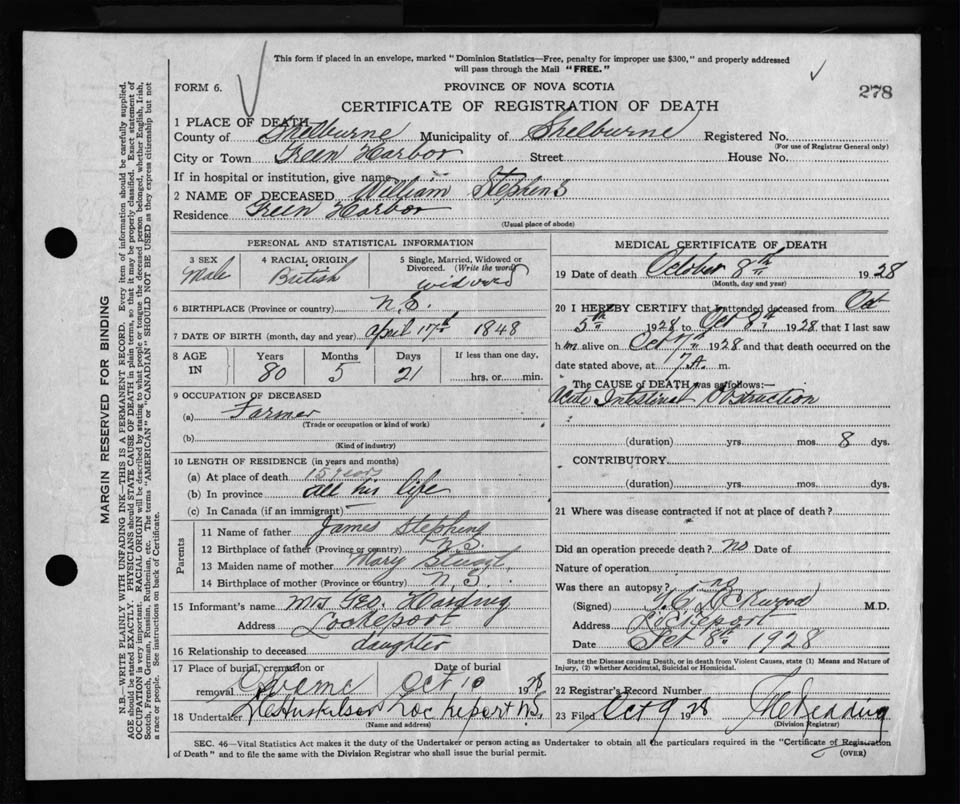 This form if placed in an envelope, marked "Dominion Statistics—Free, penalty for improper use $300," and properly addressed
will pass through the Mail "FREE."
FORM 6.
PROVINCE OF NOVA SCOTIA
278
CERTIFICATE OF REGISTRATION OF DEATH
1 PLACE OF DEATH
County of Shelburne Municipality of Shelburne Registered No.
(For use of Registrar General only)
City or Town Green Harbor Street House No.
If in hospital or institution, give name
2 NAME OF DECEASED William Stephens
Residence Green Harbor
(Usual place of abode)
PERSONAL AND STATISTICAL INFORMATION
3 SEX 4 RACIAL ORIGIN 5 Single, Married, Widowed or
Divorced. (Write the word)
Male British widowed
6 BIRTHPLACE (Province or country) N.S.
7 DATE OF BIRTH (month, day and year) April 17th 1848
8 AGE IN Years Months Days If less than one day,
80 5 21 hrs. or min.
9 OCCUPATION OF DECEASED
(a) Farmer
(Trade or occupation or kind of work)
(b)
(Kind of industry)
10 LENGTH OF RESIDENCE (in years and months)
(a) At place of death 15 years
(b) In province all his life
(c) In Canada (if an immigrant)
Parents
11 Name of father James Stephens
12 Birthplace of father (Province or country) N.S.
13 Maiden name of mother Mary
14 Birthplace of mother (Province or country) N.S.
15 Informant's name Mrs Geo. Harding
Address Lockeport
16 Relationship to deceased daughter
17 Place of burial, cremation or Date of burial
removal Oct 10 1928
18 Undertaker Lockeport N.S.
(Name and address)
MEDICAL CERTIFICATE OF DEATH
19 Date of death October 8th 1928
(Month, day and year)
20 I HEREBY CERTIFY that I attended deceased from Oct
5th 1928 to Oct 8th 1928 that I last saw
him alive on Oct 7th 1928 and that death occurred on the
date stated above, at 7 A. m.
The CAUSE OF DEATH was as follows:—
Acute Intestinal Obstruction
(duration) yrs. mos. 8 dys.
CONTRIBUTORY
(duration) yrs. mos. dys.
21 Where was disease contracted if not at place of death?
Did an operation precede death? no Date of
Nature of operation
Was there an autopsy? no
(Signed) Lockwood M.D.
Address Lockeport
Date Oct 8th 1928
State the Disease causing Death, or in death from Violent Causes, state (1) Means and Nature of
Injury, (2) whether Accidental, Suicidal or Homicidal.
22 Registrar's Record Number
23 Filed Oct 9 1928
(Division Registrar)
SEC. 46—Vital Statistics Act makes it the duty of the Undertaker or person acting as Undertaker to obtain all the particulars required in the "Certificate of Registration
of Death" and to file the same with the Division Registrar who shall issue the burial permit.
(OVER)
MARGIN RESERVED FOR BINDING
N.B.—WRITE PLAINLY WITH UNFADING INK—THIS IS A PERMANENT RECORD. Every item of information should be carefully supplied.
AGE should be stated EXACTLY. PHYSICIANS should STATE CAUSE OF DEATH in plain terms, so that it may be properly classified. Exact statement of
OCCUPATION is very important. RACIAL ORIGIN will be described by stating to what people or tongue the deceased person belonged, whether English, Irish,
Scotch, French, German, Russian, Ruthenian, etc. The terms "AMERICAN" or "CANADIAN" SHOULD NOT BE USED as they express citizenship but not
a race or people. See instructions on back of Certificate.